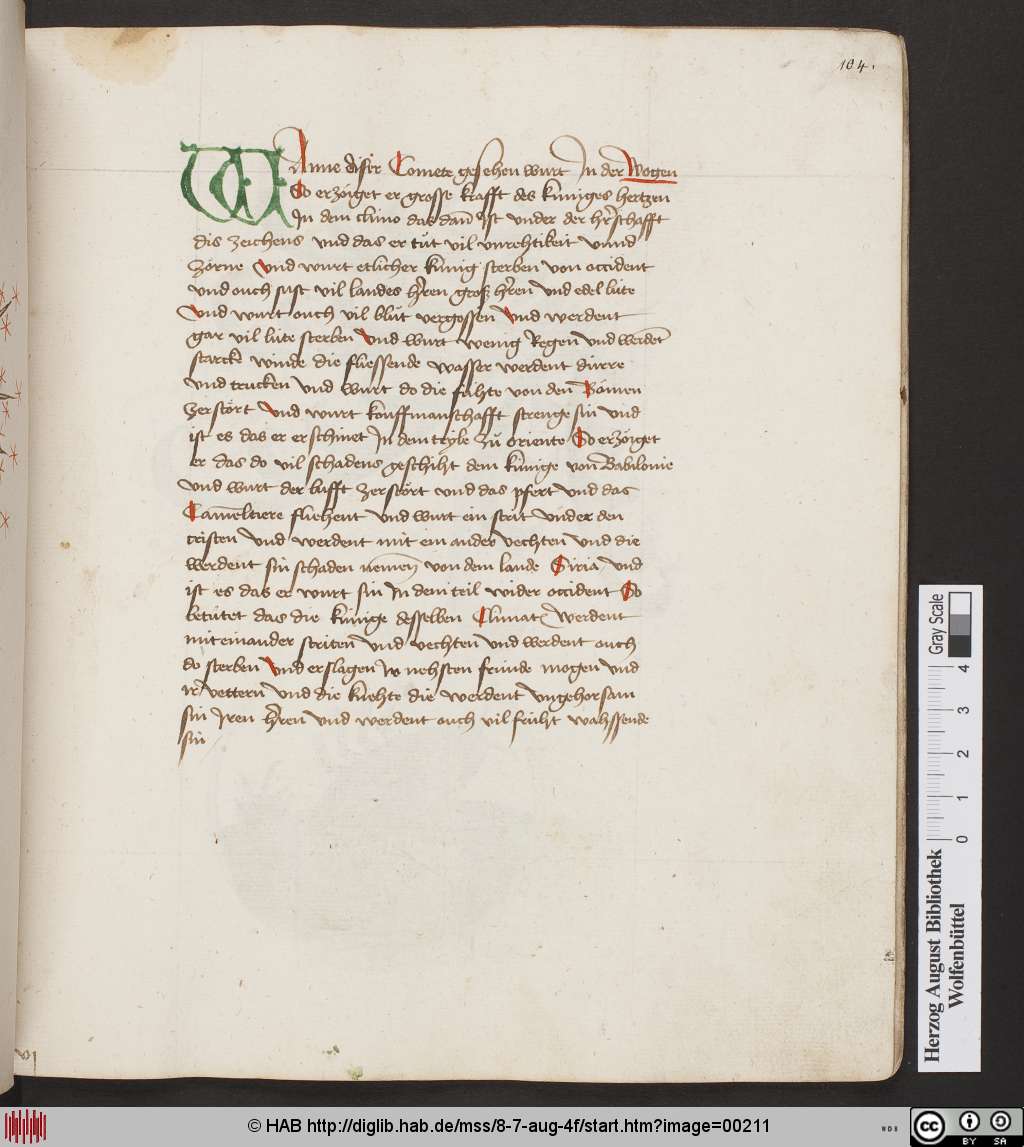 104.
WAnne diser Comete gesehen wurt In der Wogen
So erzöiget er grosse krafft des kúniges hertzen
In dem clímo das dan̄ ist vnder der hr̄schafft
dis zeichens vnd das er tůt vil vnrehtikeit vnnd
zorne vnd wurt etlicher kúnig sterben von occident
vnd ouch sust vil landes hr̄ren groß hr̄ren vnd edel lúte
vnd wurt ouch vil blůt vergossen vnd werdent
gar vil lúte sterben vnd wurt wenig Regen vnd werdēt
starcke winde die fliessende wasser werdent dúrre
vnd trucken vnd wurt do die fúhte von den Bömen
zerstört vnd wurt kouffmanschafft strenge sin vnd
ist es das er erschinet In dem teyle zů oriente So erzöiget
er das do vil schadens geschiht dem kúnige von Babilonie
vnd wurt der lufft zerstört vnd das pfert vnd das
Camēltiere fliehent vnd wurt ein strit vnder den
cristen vnd werdent mit ein ander vechten vnd die
werdent sin schaden nemen von dem lande Siria vnd
ist es das er wurt sin In dem teil wider occident So
betútet das die kúnige desselben Climatz werdent
mit einander striten vnd vechten vnd werdent ouch
do sterben vnd erslagen Ir nehsten frúnde mogen vnd
ir vettern vnd die knehte die werdent vngehorsam
sin Iren hr̄ren vnd werdent ouch vil fruht wahssende
sin
Herzog August Bibliothek
Wolfenbüttel
0 1 2 3 4
Gray Scale
© HAB http://diglib.hab.de/mss/8-7-aug-4f/start.htm?image=00211
WDB
cc BY SA